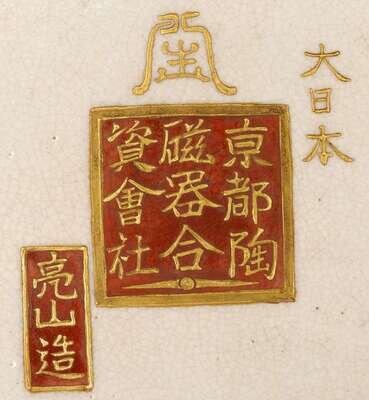 大日本
京都陶
磁器合
資會社
亮山造